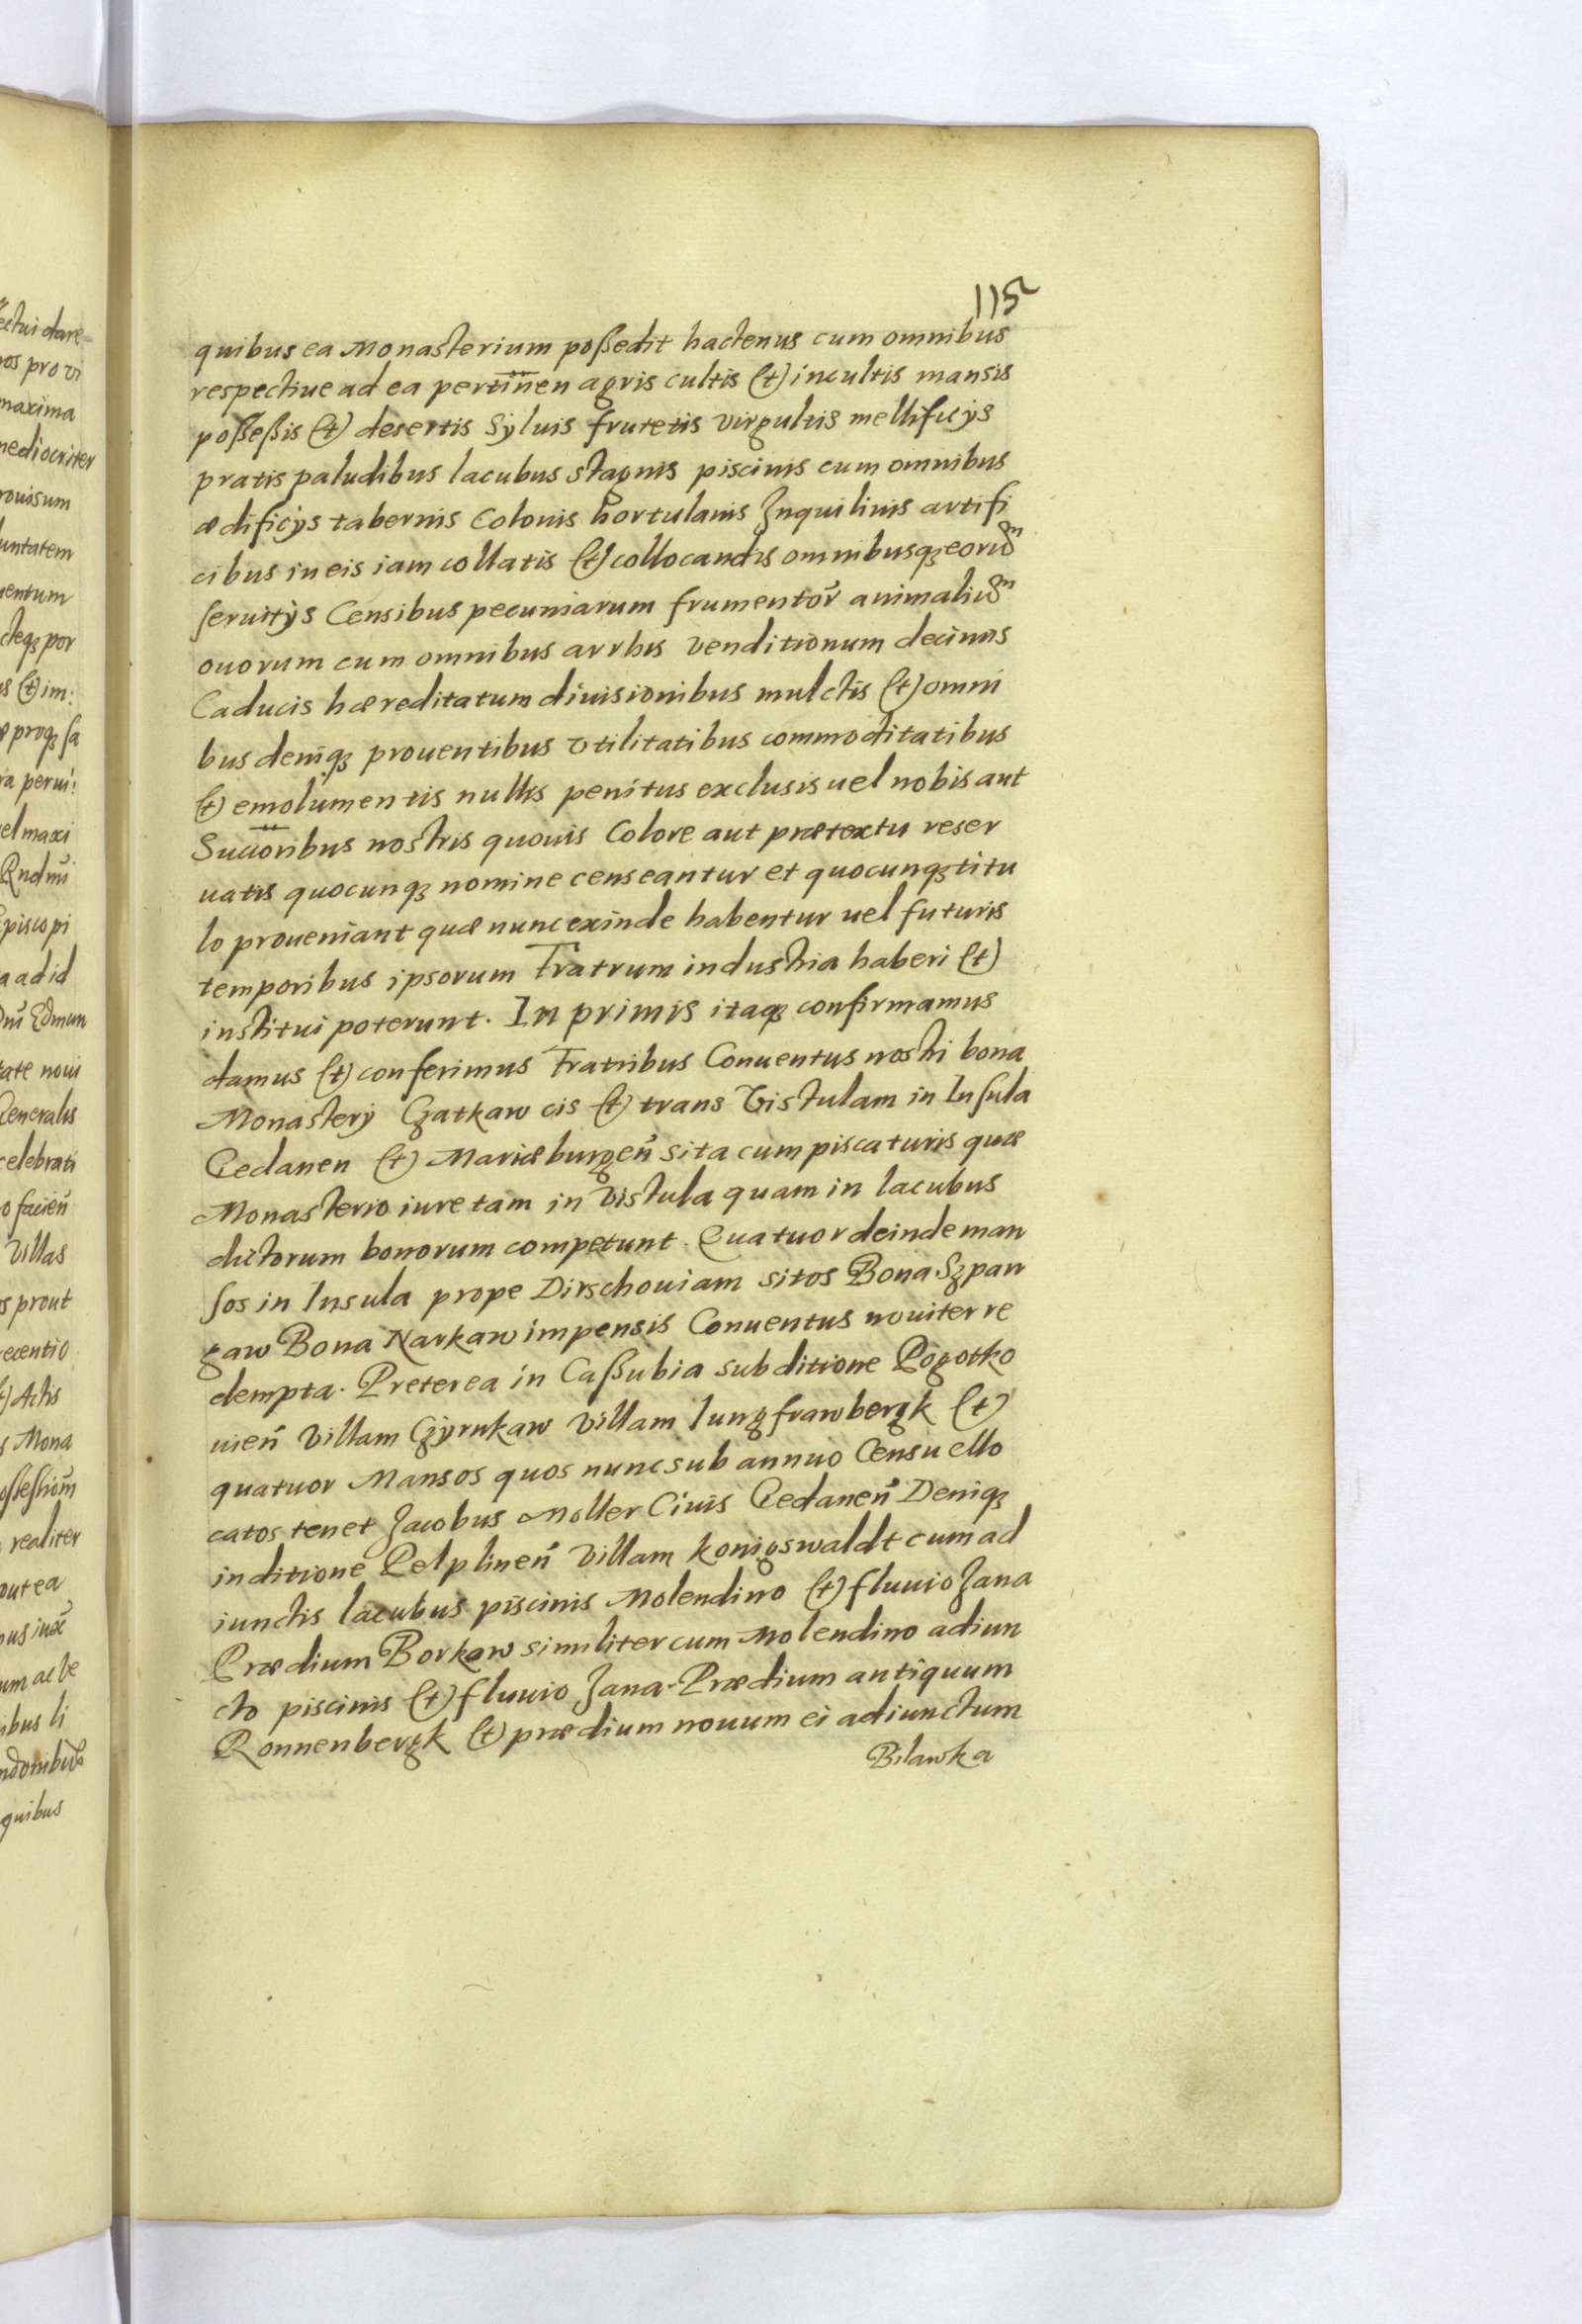 115
quibus ea Monasterium poßedit hactenus cum omnibus
respectiue ad ea pertinen̄ agris cultis (et) incultis mansis
poßeßis (et) desertis Syluis frutetis virgultis mellificÿs
pratis paludibus lacubus stagnis piscinis cum omnibus
ædificÿs tabernis Colonis hortulanis Inquilinis artifi
cibus in eis iam collatis (et) collocandis omnibusqꝫ eorum
seruitÿs Censibus pecuniarum frumentor̄ animalium
ouorum cum omnibus arrhis venditionum decimis
Caducis hæreditatum diuisionibus mulctis (et) omni
bus deniqꝫ prouentibus vtilitatibus commoditatibus
(et) emolumentis nullis penitus exclusis uel nobis aut
Succoribus nostris quouis Colore aut prætextu reser
uatis quocunqꝫ nomine censeantur et quocunqꝫ titu
lo proueniant quæ nunc exinde habentur uel futuris
temporibus ipsorum Fratrum industria haberi (et)
institui poterunt. In primis itaqꝫ confirmamus
damus (et) conferimus Fratribus Conuentus nostri bona
Monasterÿ Czatkaw cis (et) trans Vistulam in Insula
Gedanen (et) Mariæburgen̄ sita cum piscaturis quæ
Monasterio iure tam in Vistula quam in lacubus
dictorum bonorum competunt. Quatuor deinde man
sos in Insula prope Dirschouiam sitos Bona Szpan
gaw Bona Narkaw impensis Conuentus nouiter re
dempta. Preterea in Caßubia sub ditione Pogotko
uien̄ Villam Czyrnkaw Villam Iungfrawbergk (et)
quatuor Mansos quos nunc sub annuo Censu ello
catos tenet Jacobus Moller Ciuis Gedanen̄ Deniqꝫ
in ditione Pelplinen̄ Villam Konigswaldt cum ad
iunctis lacubus piscinis Molendino (et) fluuio Jana
Prædium Borkaw similiter cum Molendino adiun
cto piscinis (et) fluuio Jana. Prædium antiquum
Ronnenbergk (et) prædium nouum ei adiunctum
Bilawka